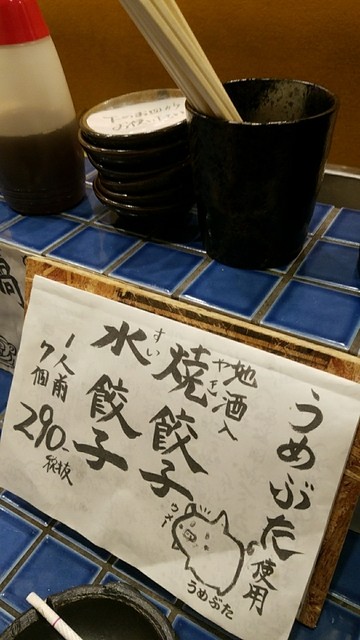 うめぶた使用
地酒入
やき
焼餃子
すい
水餃子
1人前
7個
290-
税抜
うめぶた